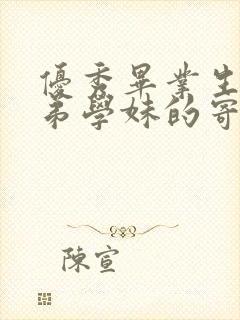 優秀畢業生
弟學妹的寄
陳宣